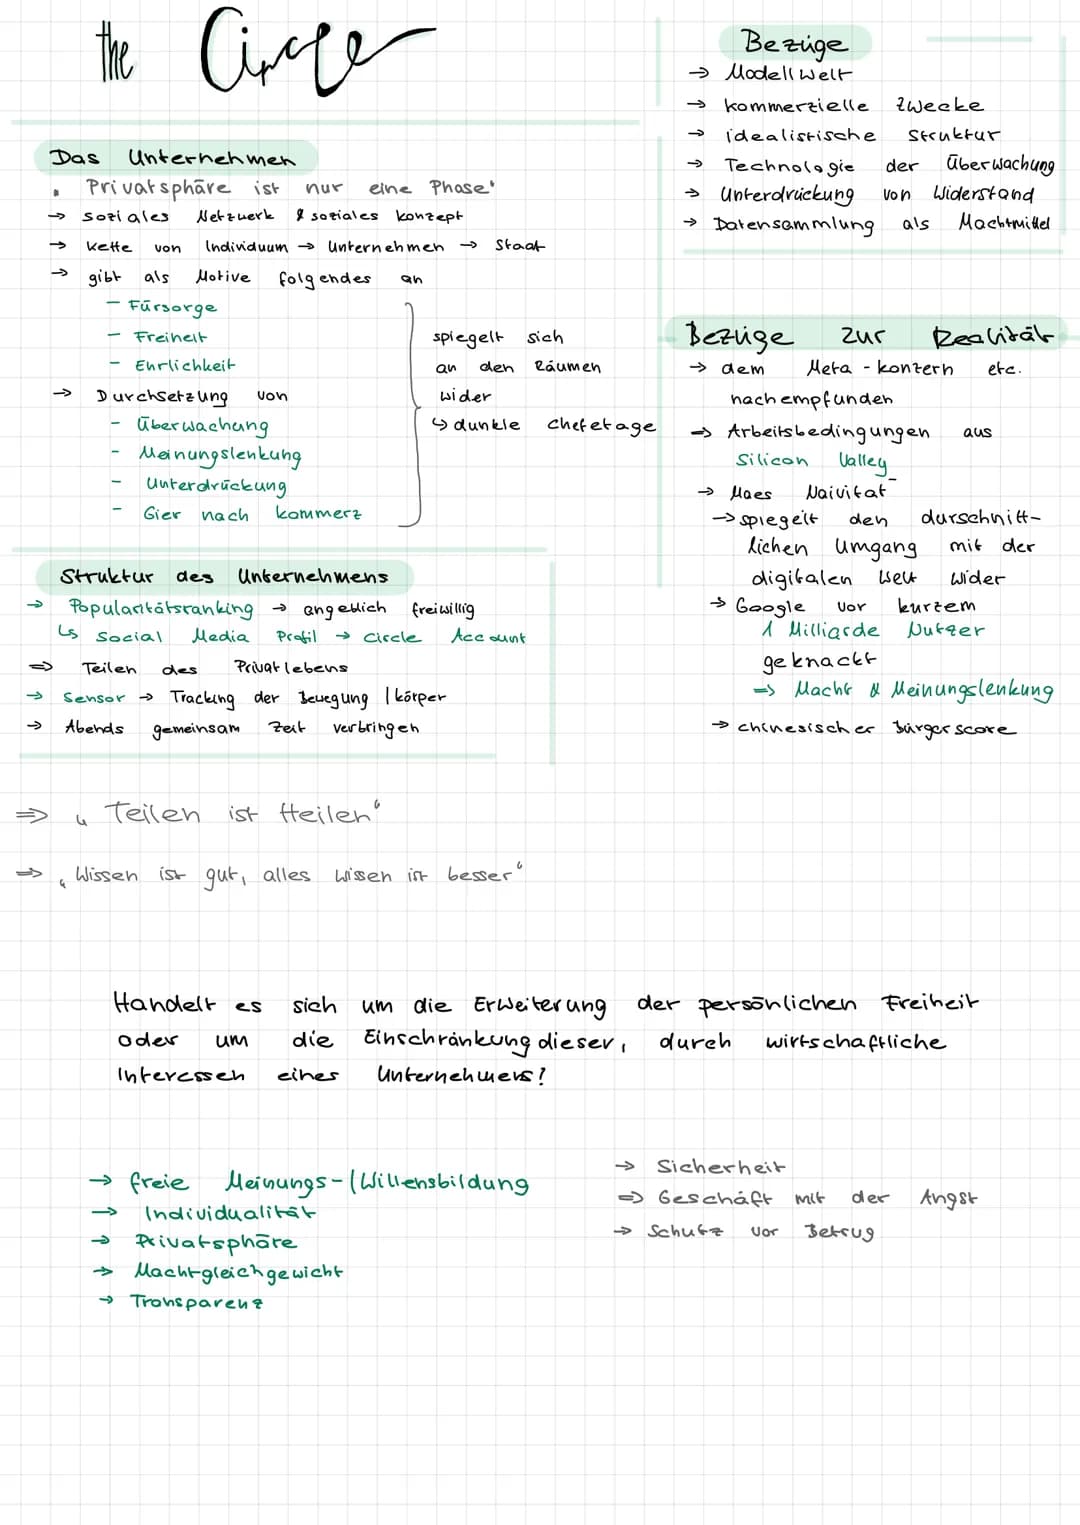 the Circle
Das Unternehmen
„Privatsphäre ist nur eine Phase"
→ soziales Netzwerk & soziales konzept
→ Kette von Individuum → Unternehmen → Staat
→ gibt als Motive folgendes an
- Fürsorge
- Freiheit
- Ehrlichkeit
→ Durchsetzung von
- Überwachung
- Meinungslenkung
- Unterdrückung
- Gier nach kommerz
spiegelt sich
an den Räumen
wider
↳ dunkle chefetage
Struktur des Unternehmens
→ Popularitätsranking → angeblich freiwillig
↳ Social Media Profil → Circle Account
⇒ Teilen des Privatlebens
→ Sensor → Tracking der Bewegung | körper
→ Abends gemeinsam Zeit verbringen
⇒ „Teilen ist Heilen"
⇒ „Wissen ist gut, alles wisen ist besser"
Bezüge
→ Modellwelt
→ kommerzielle Zwecke
→ idealistische Struktur
→ Technologie der Überwachung
→ Unterdrückung von Widerstand
→ Datensammlung als Machtmittel
Bezüge zur Realität
→ dem Meta-konzern etc.
nachempfunden
⇒ Arbeitsbedingungen aus
Silicon Valley
→ Maes Naivität
→ spiegelt den durschnitt-
lichen Umgang mit der
digitalen Welt wider
→ Google vor kurzem
1 Milliarde Nutzer
geknackt
⇒ Macht & Meinungslenkung
→ chinesischer Bürgerscore
Handelt es sich um die Erweiterung der persönlichen Freiheit
oder um die Einschränkung dieser, durch wirtschaftliche
Interessen eines Unternehmens?
→ freie Meinungs-|Willensbildung
→ Individualität
→ Privatsphäre
→ Machtgleichgewicht
→ Transparenz
→ Sicherheit
⇒ Geschäft mit der Angst
→ Schutz vor Betrug